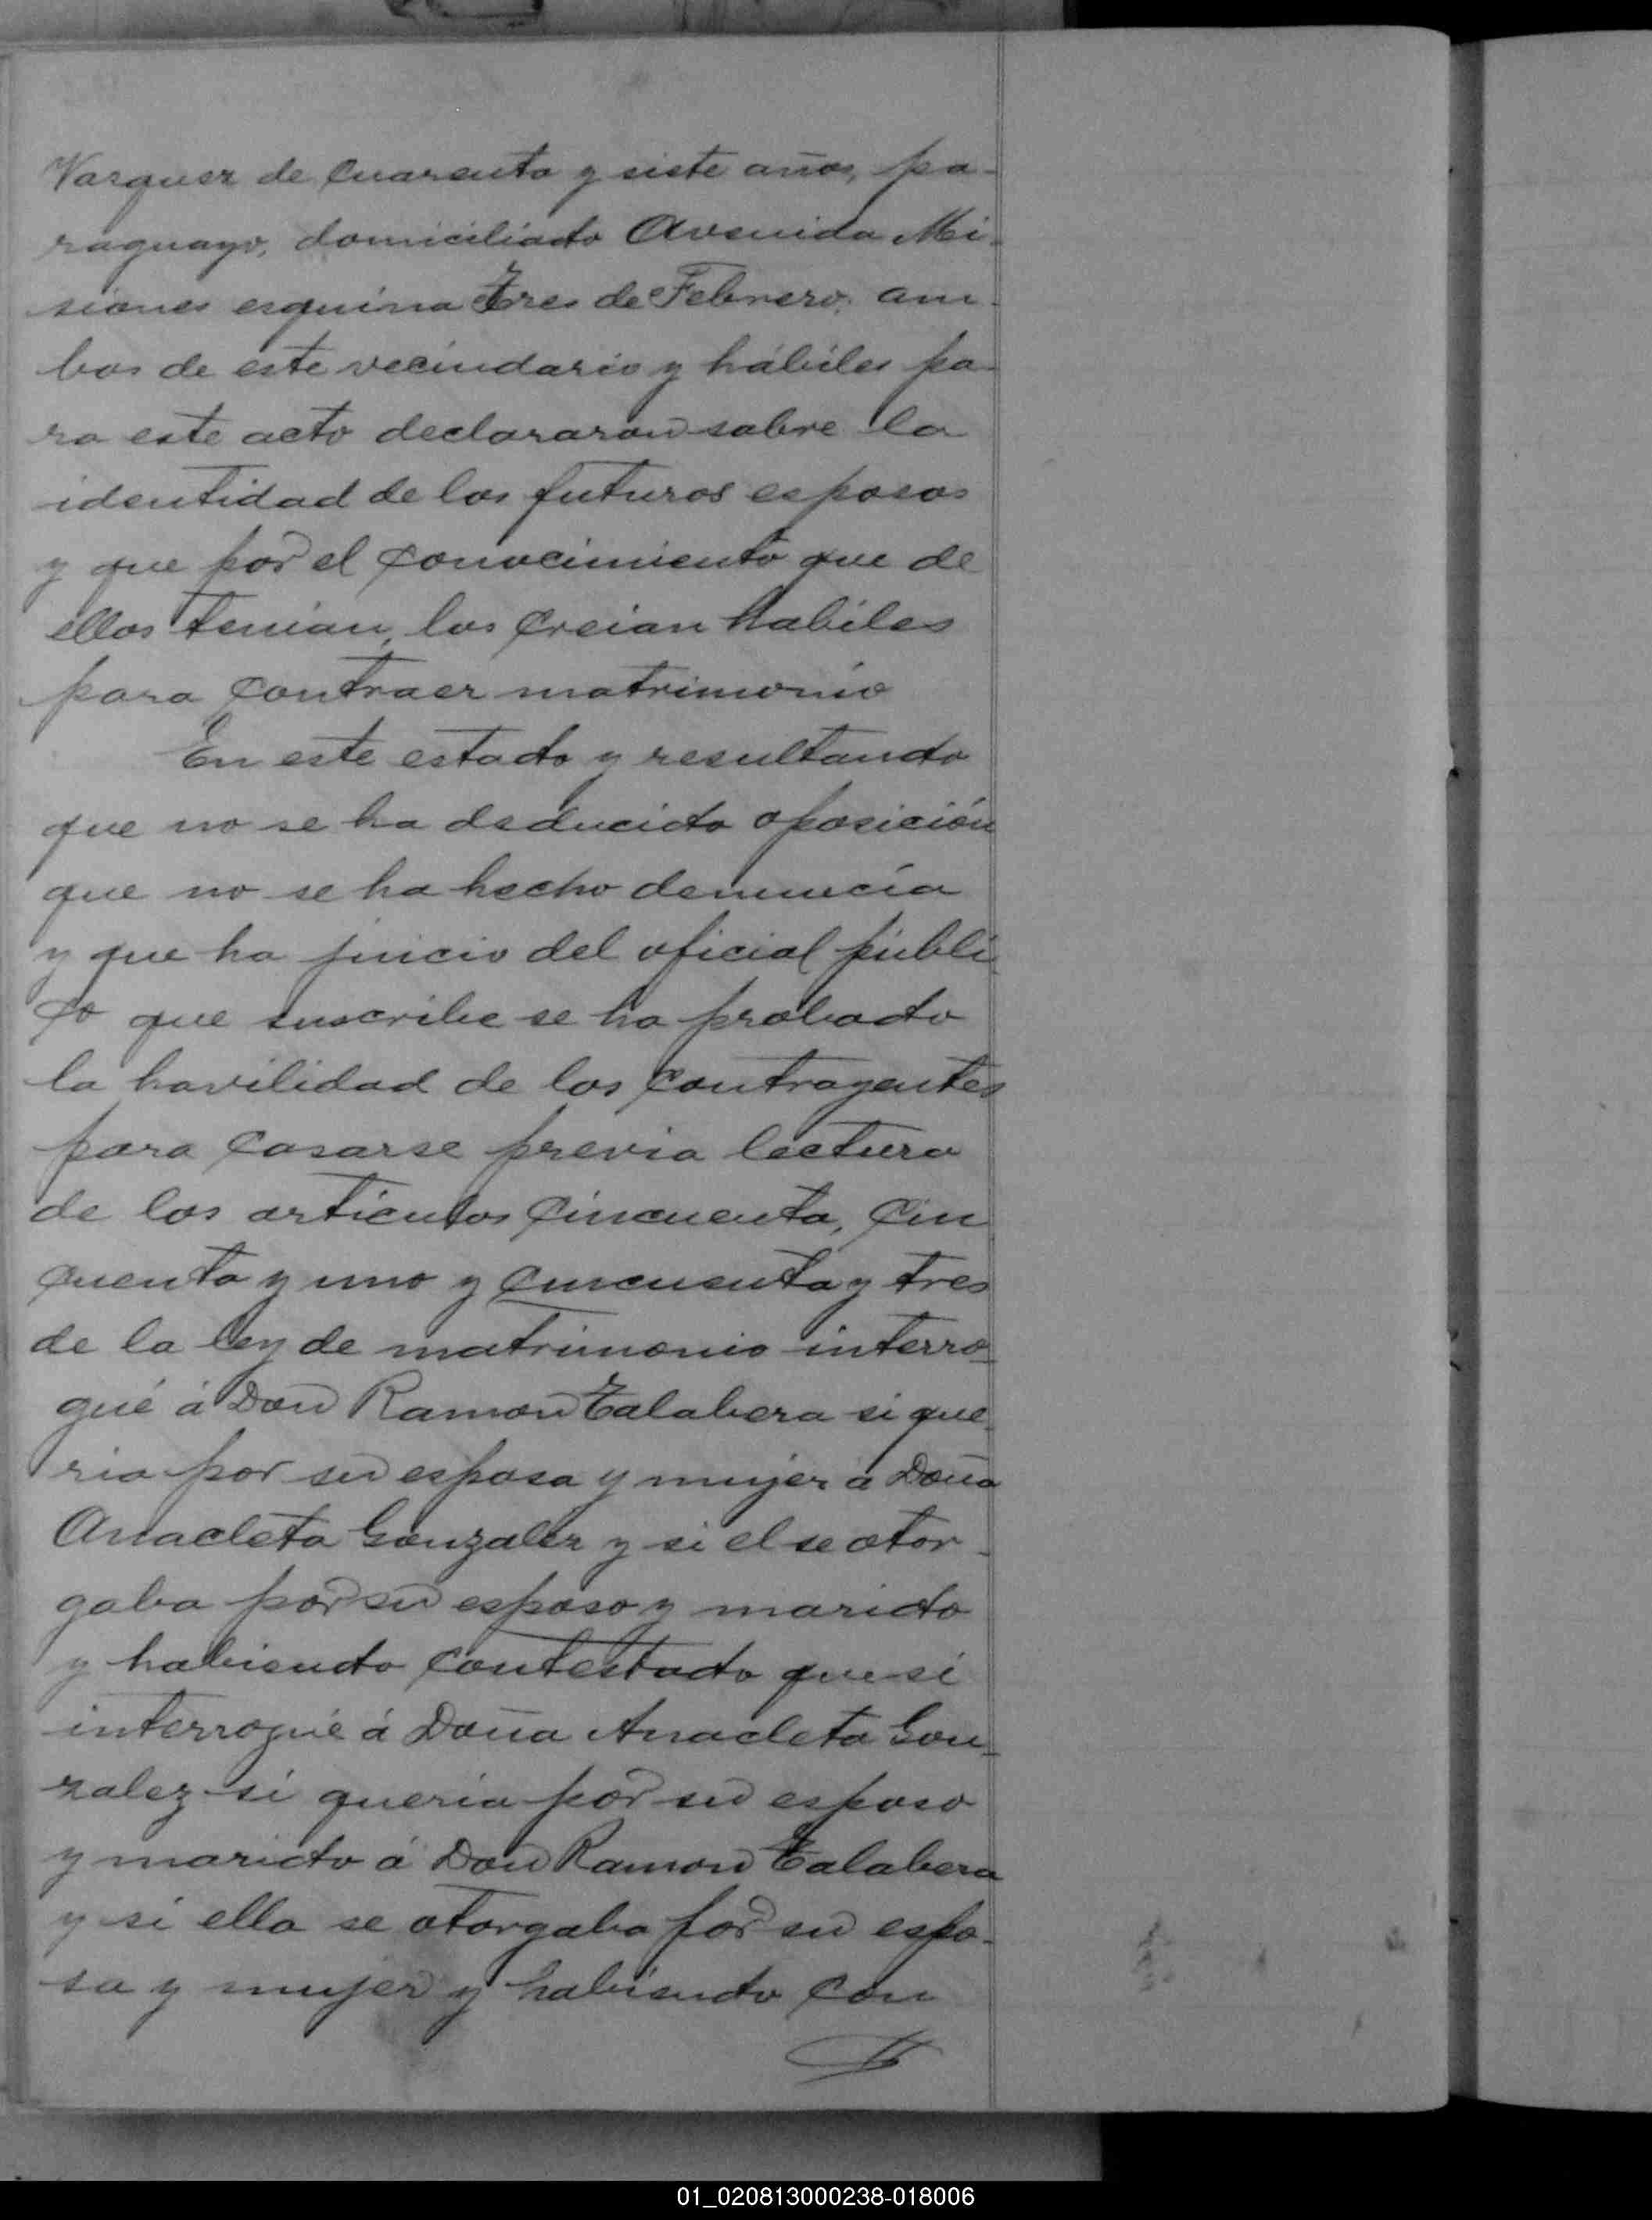 Vasquez de cuarenta y siete años, pa-
raguayo, domiciliado Avenida Mi-
siones esquina Tres de Febrero, am-
bos de este vecindario y hábiles pa-
ra este acto declararon sobre la
identidad de los futuros esposos
y que por el conocimiento que de
ellos tenian, los creian habiles
para contraer matrimonio
En este estado y resultando
que no se ha deducido oposición
que no se ha hecho denuncia
y que ha juicio del oficial públi-
co que suscribe se ha probado
la havilidad de los contrayentes
para casarse previa lectura
de los articulos cincuenta, cin
cuenta y uno y cincuenta y tres
de la ley de matrimonio interro-
gué á Don Ramon Talabera si que-
ria por su esposa y mujer a Doña
Anacleta Gonzalez y si el se otor-
gaba por su esposo y marido
y habiendo contestado que si
interrogué á Doña Anacleta Gon-
zalez si queria por su esposo
y marido á Don Ramon Talabera
y si ella se otorgaba por su espo-
sa y mujer y habiendo con
01_020813000238-018006